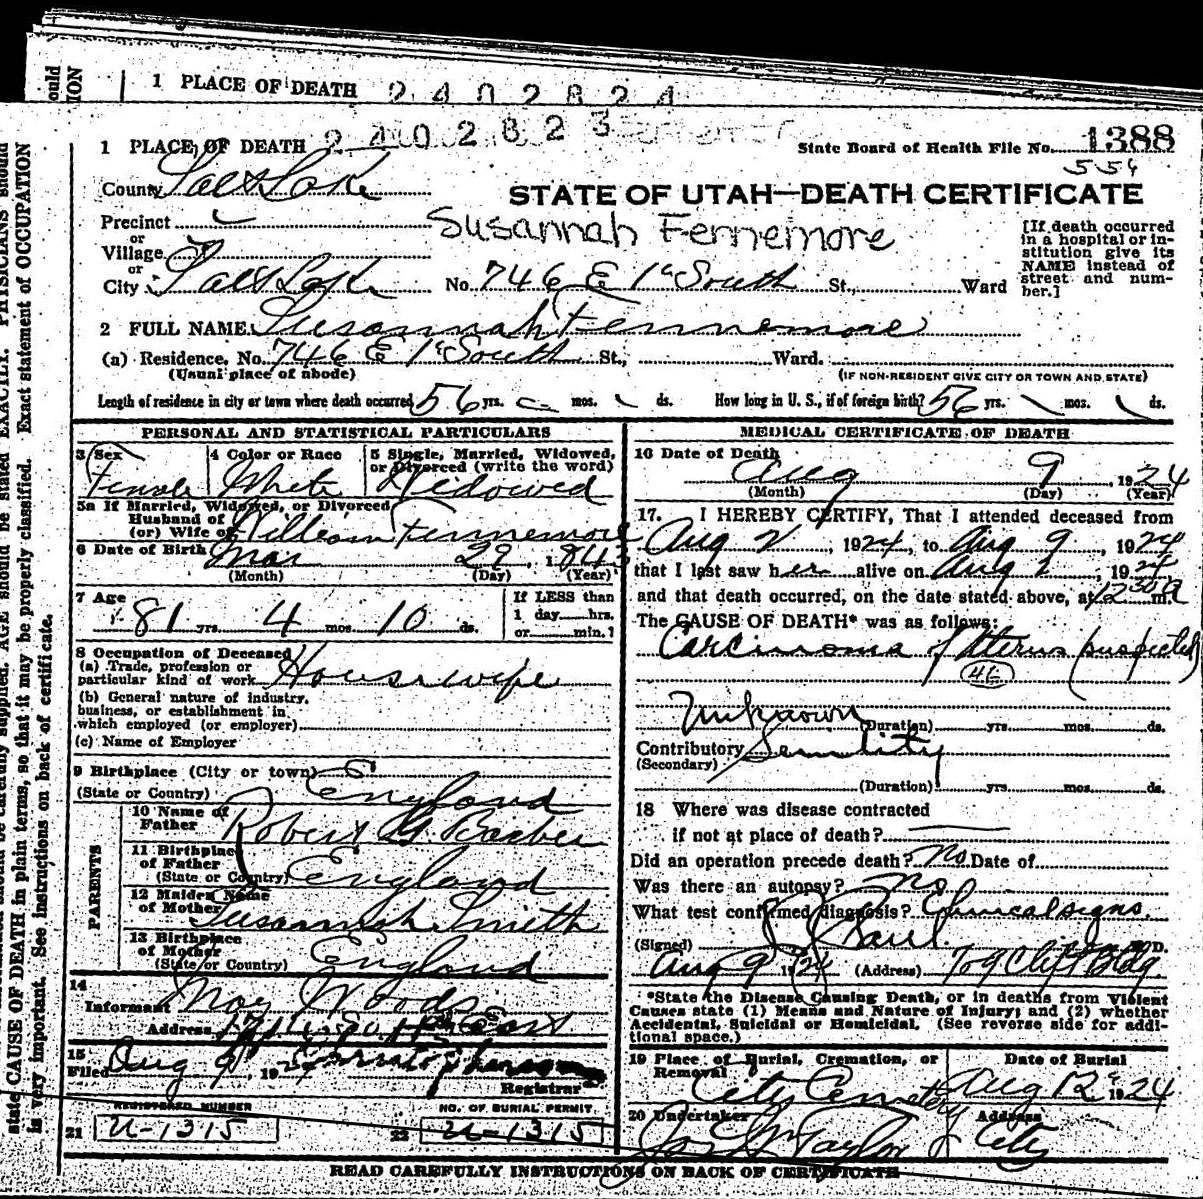 ould
ION
1 PLACE OF DEATH 2402824
1 PLACE OF DEATH 2402823
State Board of Health File No. 1388
554
County Salt Lake
STATE OF UTAH—DEATH CERTIFICATE
Precinct
Susannah Fennemore
or
Village
or
City Salt Lake No. 746 E 1st South St., Ward
[If death occurred
in a hospital or in-
stitution give its
NAME instead of
street and num-
ber.]
2 FULL NAME Susannah Fennemore
(a) Residence, No. 746 E 1st South St., Ward.
(Usual place of abode) (IF NON-RESIDENT GIVE CITY OR TOWN AND STATE)
Length of residence in city or town where death occurred 56 yrs. mos. ds. How long in U. S., if of foreign birth? 56 yrs. mos. ds.
PERSONAL AND STATISTICAL PARTICULARS
3 Sex 4 Color or Race 5 Single, Married, Widowed,
or Divorced (write the word)
Female White Widowed
5a If Married, Widowed, or Divorced
Husband of
(or) Wife of William Fennemore
6 Date of Birth Mar 29, 1843
(Month) (Day) (Year)
7 Age If LESS than
1 day hrs.
81 yrs. 4 mos. 10 ds. or min.?
8 Occupation of Deceased
(a) Trade, profession or
particular kind of work Housewife
(b) General nature of industry,
business, or establishment in
which employed (or employer)
(c) Name of Employer
9 Birthplace (City or town)
(State or Country) England
PARENTS
10 Name of
Father Robert G. Barber
11 Birthplace
of Father
(State or Country) England
12 Maiden Name
of Mother Susannah Smith
13 Birthplace
of Mother
(State or Country) England
14
Informant May Woods
Address
15
Filed Aug 9, 1924
Registrar
REGISTERED NUMBER NO. OF BURIAL PERMIT
21 U-1315 22 U-1315
MEDICAL CERTIFICATE OF DEATH
16 Date of Death
Aug 9 1924
(Month) (Day) (Year)
17. I HEREBY CERTIFY, That I attended deceased from
Aug 2, 1924, to Aug 9, 1924
that I last saw her alive on Aug 2, 1924
and that death occurred, on the date stated above, at 12 30 a m.
The CAUSE OF DEATH* was as follows:
Carcinoma of Uterus (suspected)
46
Unknown (Duration) yrs. mos. ds.
Contributory Senility
(Secondary)
(Duration) yrs. mos. ds.
18 Where was disease contracted
if not at place of death?
Did an operation precede death? No Date of
Was there an autopsy? No
What test confirmed diagnosis? Clinical signs
(Signed) J Saul M. D.
Aug 9 1924 (Address) 709 Clift Bldg.
*State the Disease Causing Death, or in deaths from Violent
Causes state (1) Means and Nature of Injury; and (2) whether
Accidental, Suicidal or Homicidal. (See reverse side for addi-
tional space.)
19 Place of Burial, Cremation, or Removal Date of Burial
City Cemetery Aug 12 1924
20 Undertaker Address
Taylor City
READ CAREFULLY INSTRUCTIONS ON BACK OF CERTIFICATE
should be carefully supplied. AGE should be stated EXACTLY. PHYSICIANS should
state CAUSE OF DEATH in plain terms, so that it may be properly classified. Exact statement of OCCUPATION
is very important. See instructions on back of certificate.